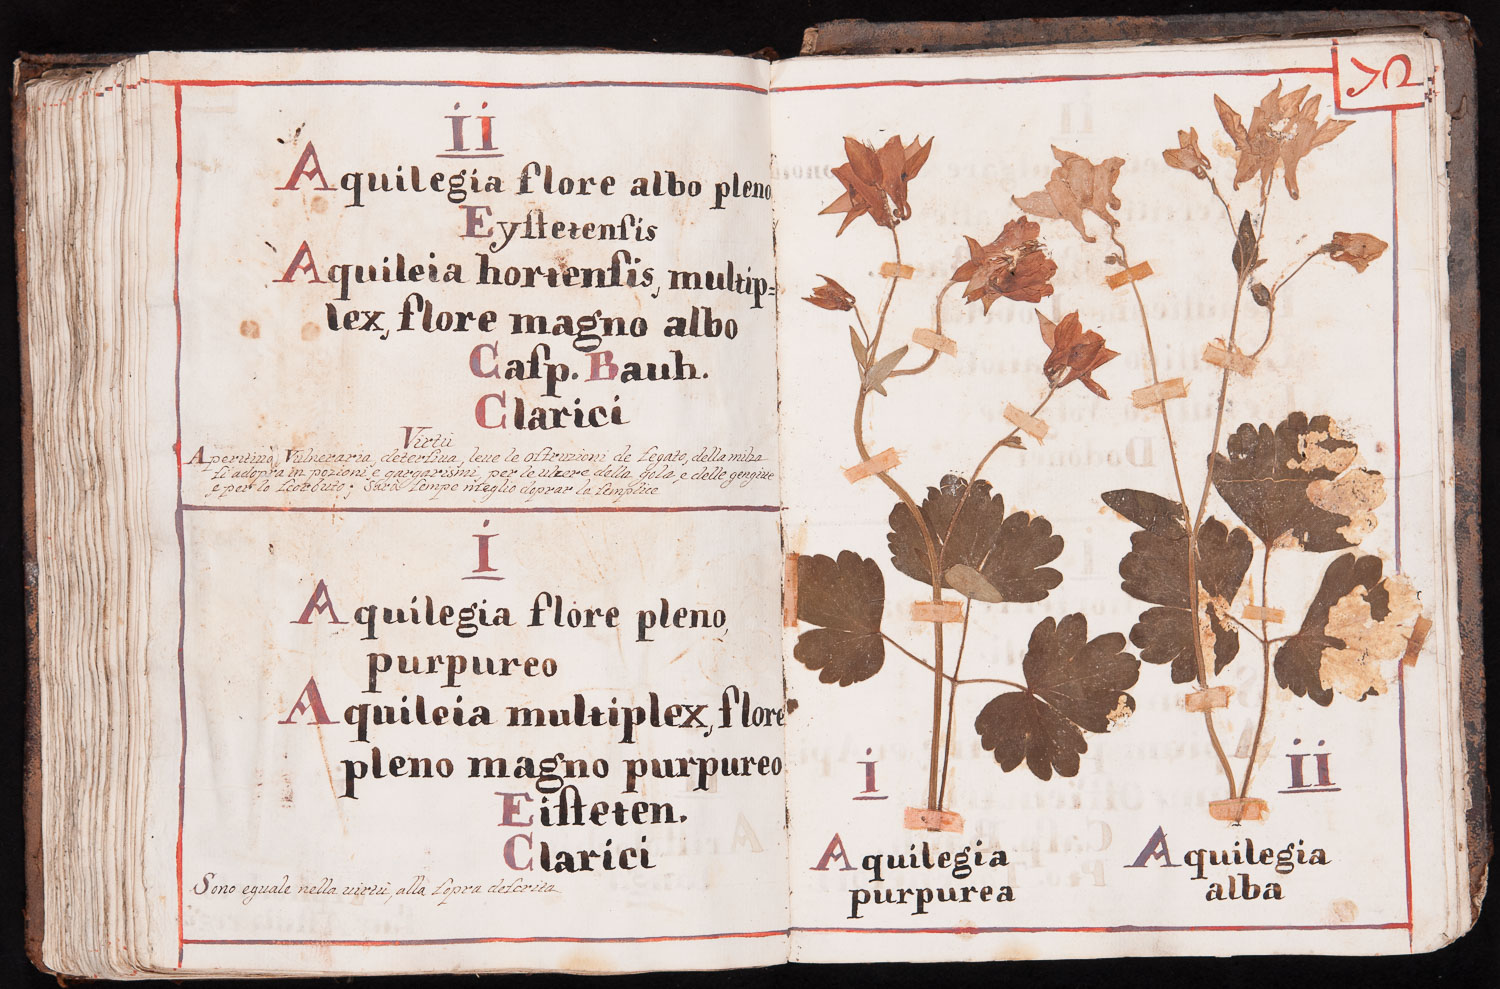 ii
Aquilegia flore albo pleno
Eyſtetenſis
Aquileia hortenſis, multip=
lex, flore magno albo
Caſp. Bauh.
Clarici
Virtù
Aperitiva, Vulneraria, deterſiva, leva le oſtruzioni de fegato, della milza
ſi adopra in pozioni e gargarismi, per le ulcere della gola, e delle gengive
e per lo ſcorbuto; Sarà ſempre meglio doprar la ſemplice
i
Aquilegia flore pleno,
purpureo
Aquileia multiplex, flore
pleno magno purpureo
Eiſteten.
Clarici
Sono eguale nella virtù alla ſopra deſcrita
i
Aquilegia
purpurea
ii
Aquilegia
alba